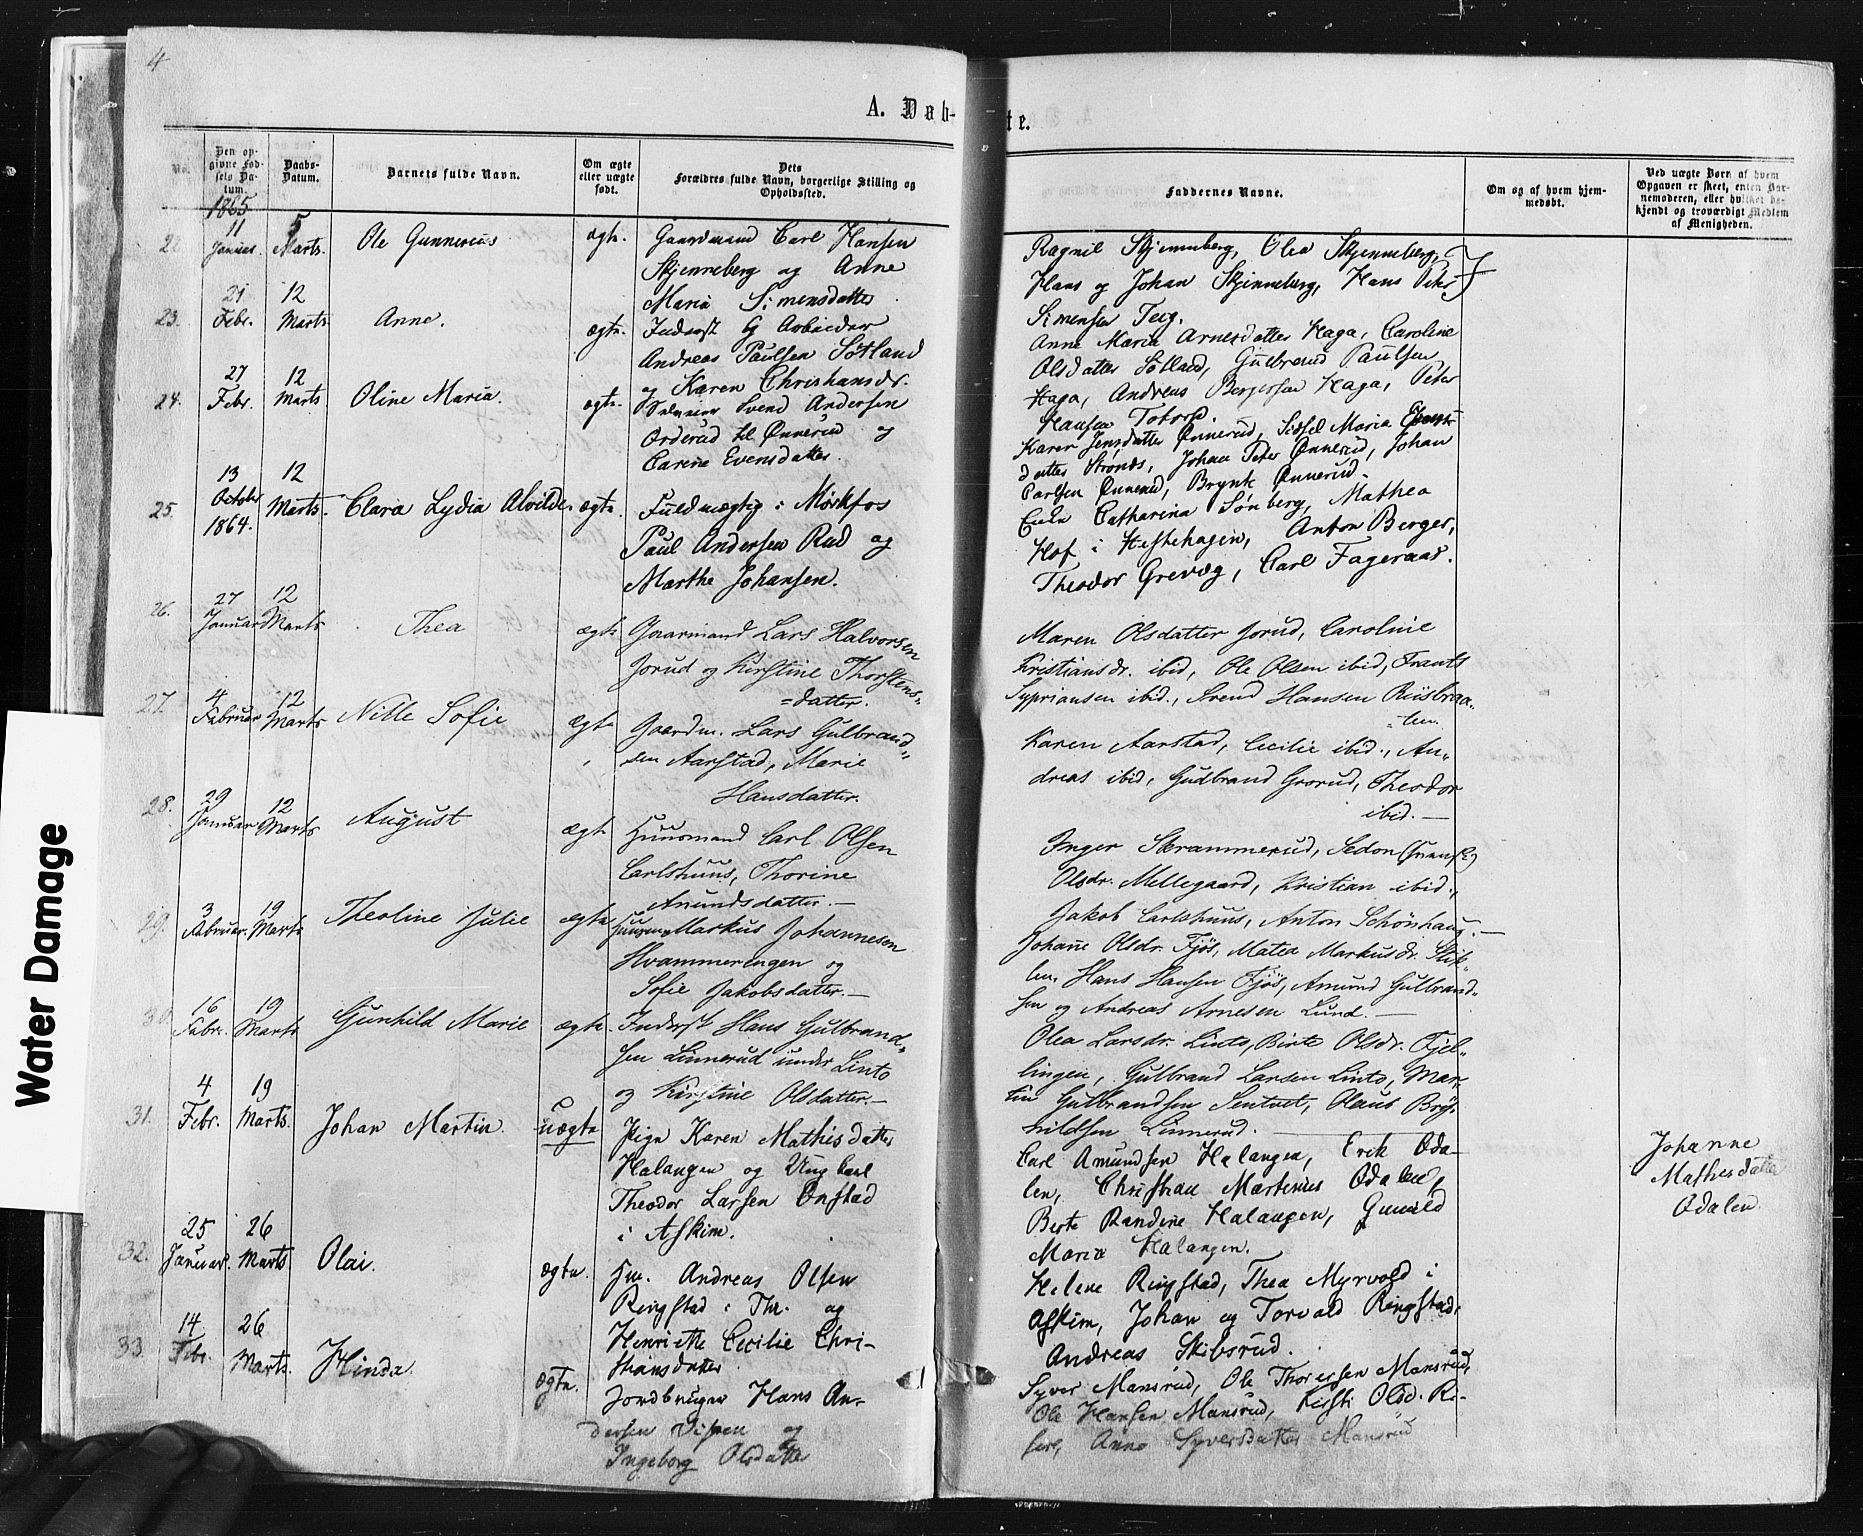 4
A. Døb-
te.
No.
Den op-
givne Fød-
sels Da-
tum.
Daabs-
Datum.
Barnets fulde Navn.
Om ægte
eller uægte
født.
Dets
Forældres fulde Navn, borgerlige Stilling og
Opholdssted.
Faddernes Navne.
Om og af hvem hjem-
medøbt.
Ved uægte Børn af hvem
Opgaven er skeet, enten Bar-
nemoderen, eller hvilket be-
kjendt og troværdigt Medlem
af Menigheden.
1865
11
Januar.
5
Marts.
Ole Gunnerius
ægte.
Gaardmand Carl Hansen
Skjenneberg og Anne
Maria Simensdatter
Ragnil Skjenneberg, Olea Skjenneberg,
Hans og Johan Skjenneberg, Hans Peter
Simensen Teig.
23.
21
Febr.
12
Marts
Anne.
ægte.
Inderst G Arbeider
Andreas Paulsen Søtland
og Karen Christiansdr.
Anne Maria Arnesdatter Haga, Caroline
Olsdatter Søtland, Gulbrand Paulsen
Haga, Andreas Bergersen Haga, Peter
Hansen Totorp.
24.
27
Febr.
12
Marts
Oline Maria.
ægte.
Svend Andersen
Orderud til Ønnerud og
Carine Evensdatter.
Karen Jensdatter Ønnerud, Sidsel Maria
datter Strønes, Johan Peter Ønnerud, Johan
Carlsen Ønnerud, Brynk Ønnerud.
25.
13
October
1864.
12
Marts.
Clara Lydia Alvilde.
ægte.
Fuldmægtig i Mørkfos
Paul Andersen Rud og
Marthe Johansen.
Catharina Sønberg, Mathea
Hof i Hestehagen, Anton Berger,
Theodor Grevæg, Carl Fageraas.
26.
27
Januar
12
Marts
Thea
ægte
Gaarmand Lars Halvorsen
Jorud og Kirstine Thorstens-
=datter.
Maren Olsdatter Jorud, Caroline
Kristiansdr. ibid, Ole Olsen ibid, Frants
Sypriansen ibid., Svend Hansen Riisbraa-
=ten.
27.
4
Februar
12
Marts
Nille Sofie
ægte
Gaardm. Lars Gulbrand-
sen Aarstad, Marie
Hansdatter.
Karen Aarstad, Cecilie ibid., An-
dreas ibid, Gudbrand Grorud, Theodor
ibid.—
28.
29
Januar
12
Marts
August
ægte
Huusmand Carl Olsen
Carlshuus, Thorine
Amundsdatter.—
Inger Skrammerud, Sedon
Olsdr. Mellegaard, Kristian ibid.,
Jakob Carlshuus, Anton Schönhaug.—
29.
3
Februar.
19
Marts
Theoline Julie
ægte
Markus Johannesen
Hvammeringen og
Sofie Jakobsdatter.—
Johane Olsdr. Fjøs, Matea Markusdr. Stik-
len. Hans Hansen Fjøs, Amund Gulbrand-
sen og Andreas Arnesen Lund.—
30.
16
Febr.
19
Marts
Gunhild Marie
ægte
Inderst Hans Gulbrand-
sen Linnerud under Linto
og Kirstine Olsdatter.—
Olea Larsdr. Linto, Birte Olsdr. Fjel-
lingen, Gulbrand Larsen Linto, Mar-
tin Gulbrandsen Sentvet, Olaus Bryn-
hildsen Linnerud.
31.
4
Febr.
19
Marts.
Johan Martin.
uægte
Pige Karen Mathisdatter
Halangen og Ung Carl
Theodor Larsen Onstad
i Askim.
Carl Amundsen Halangen, Erik Oda-
len, Christian Martenius Odalen,
Berte Randine Halangen, Gunild
Maria Halangen.
Johanne
Mathisdatter
Odalen.
32.
25
Januar.
26
Marts.
Olai.
ægte.
Hm. Andreas Olsen
Ringstad i Thr. og
Henriette Cecilie Chri-
stiansdatter
Helene Ringstad, Thea Myrvold i
Askim, Johan og Torvald Ringstad,
Andreas Skibsrud.
33.
14
Febr.
26
Marts.
Hinda.
ægte.
Jordbruger Hans An-
dersen og
Ingeborg Olsdatter
Syver Mansrud, Ole Thoresen Mansrud,
Ole Hansen Mansrud, Kirsti Olsd. Ri-
sere, Anne Syversdatter Mansrud
Water Damage